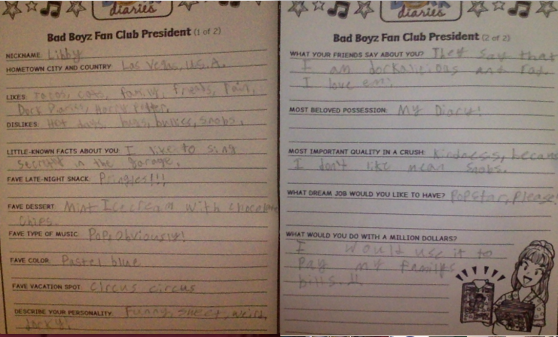 diaries
Bad Boyz Fan Club President (1 of 2)
NICKNAME: Libby
HOMETOWN CITY AND COUNTRY: Las Vegas, U.S.A.
LIKES: cats, family, friends,
Dork Harry Potter.
DISLIKES: Hot snobs.
LITTLE-KNOWN FACTS ABOUT YOU: I like to sing
secretly in the garage.
FAVE LATE-NIGHT SNACK: Pringles!!!
FAVE DESSERT: Mint Icecream with chocolate
chips.
FAVE TYPE OF MUSIC: Pop, obviously!
FAVE COLOR: Pastel blue
FAVE VACATION SPOT: Circus circus
DESCRIBE YOUR PERSONALITY: Funny, sweet, weird,
dorky!
diaries
Bad Boyz Fan Club President (2 of 2)
WHAT YOUR FRIENDS SAY ABOUT YOU? They say that
I am dorkalicious and rad.
I love em!
MOST BELOVED POSSESSION: My Diary!
MOST IMPORTANT QUALITY IN A CRUSH: Kindness, because
I don't like mean snobs.
WHAT DREAM JOB WOULD YOU LIKE TO HAVE? Popstar, Please!
WHAT WOULD YOU DO WITH A MILLION DOLLARS?
I would use it to
Pay my familys
bills.